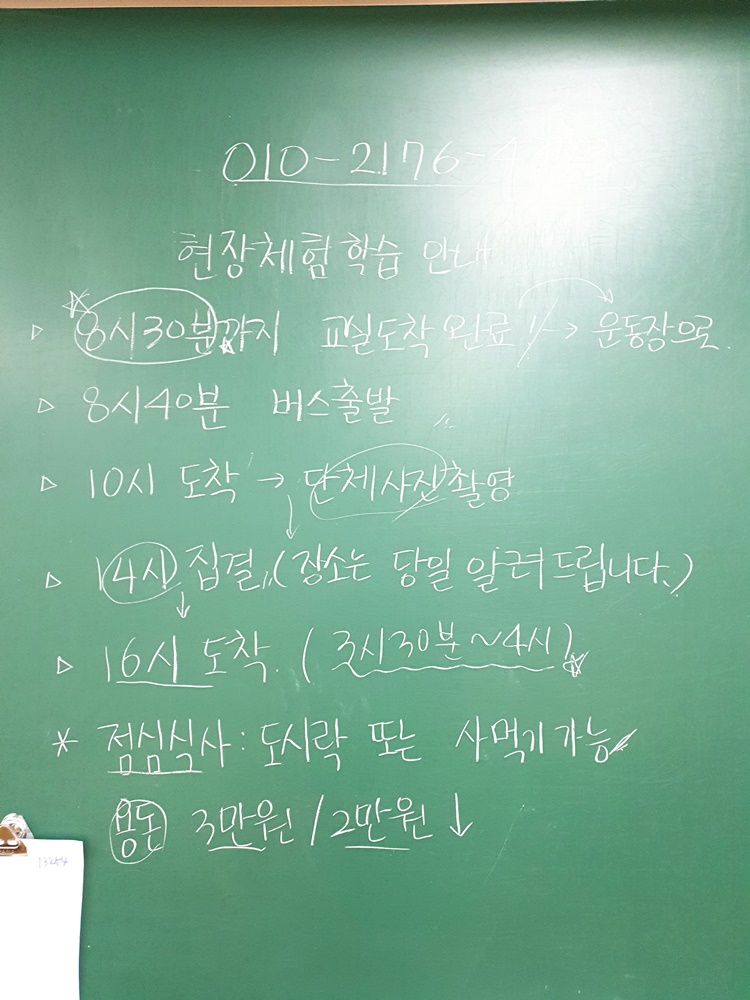 010-2176-4
현장체험학습 안내
▷ 8시30분까지 교실도착 완료! → 운동장으로.
▷ 8시40분 버스출발
▷ 10시 도착 → 단체사진촬영
↓
▷ 14시 집결 (장소는 당일 알려드립니다.)
↓
▷ 16시 도착. (3시30분~4시)
* 점심식사: 도시락 또는 사먹기 가능
용돈 3만원 / 2만원 ↓
13254